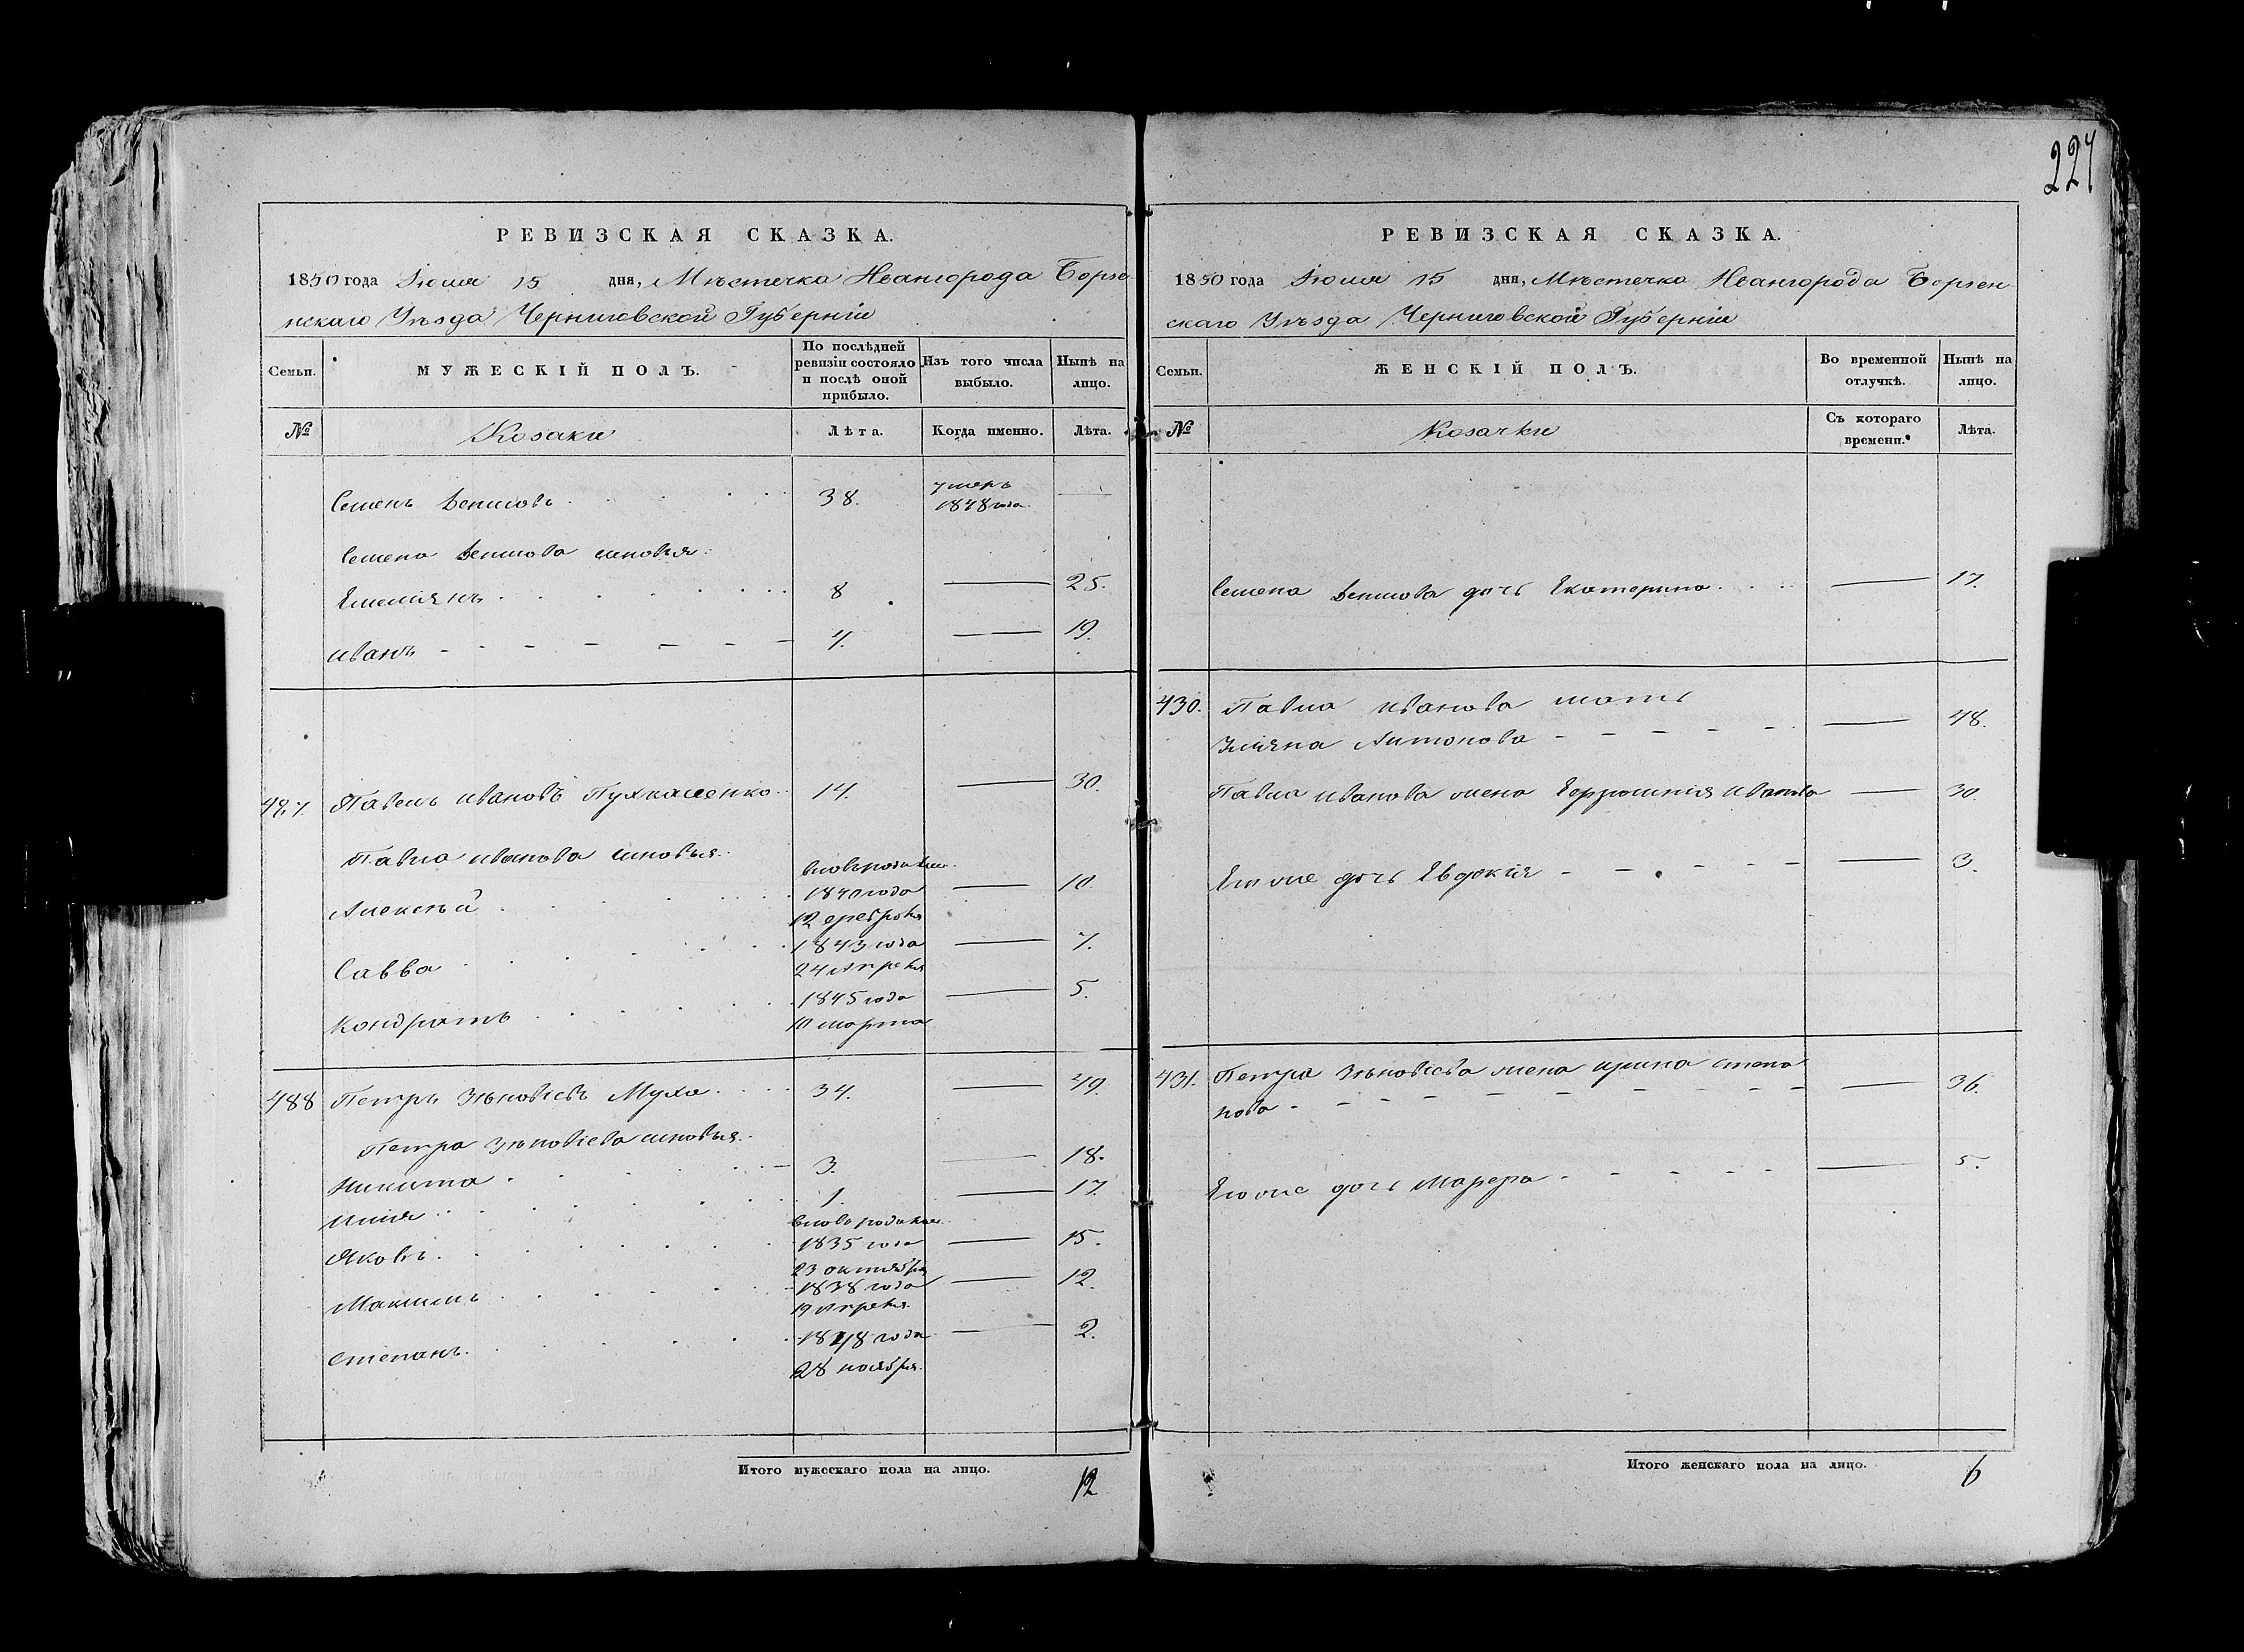 224
РЕВИЗСКАЯ СКАЗКА.
1850 года Іюля 15 дня, Мѣстечка Ивангорода Борзе-
нскаго Уѣзда Черниговской Губерніи
Семьи.
МУЖЕСКІЙ ПОЛЪ.
По послѣдней ревизіи состояло и послѣ оной прибыло.
Изъ того числа выбыло.
Нынѣ на лицо.
№
Козаки
Лѣта.
Когда именно.
Лѣта.
Семенъ Денисовъ 38. умеръ 1848 года —
Семена Денисова сыновья:
Емельянъ 8 — 25.
Иванъ 4. — 19.
487. Павелъ Ивановъ 14. — 30.
Павла Иванова сыновья:
вновь рожден.
Алексѣй 1840 года — 10.
12 февраля
Савва 1843 года — 7.
24 Апреля
Кондратъ 1845 года — 5.
10 марта
488 Петръ Зѣновіевъ Муха 34. — 49.
Петра Зѣновіева сыновья.
Никита 3. — 18.
Илья 1. — 17.
вновь рожден.
Яковъ 1835 года — 15.
23 октября
Максимъ 1838 года — 12.
19 Апреля
Степанъ 1848 года — 2.
28 ноября.
Итого мужескаго пола на лицо. 12
РЕВИЗСКАЯ СКАЗКА.
1850 года Іюля 15 дня, Мѣстечка Ивангорода Борзен-
скаго Уѣзда Черниговской Губерніи
Семьи.
ЖЕНСКІЙ ПОЛЪ.
Во временной отлучкѣ.
Нынѣ на лицо.
№
Козачки
Съ котораго времени.
Лѣта.
Семена Денисова дочь Екатерина — 17.
430. Павла Иванова мать
Уліяна Антонова — 48.
Павла Иванова жена Ефросинія Иванова — 30.
Его же дочь Евдокія — 3.
431. Петра Зѣновіева жена Ирина Степа
нова — 36.
Его же дочь Марфа — 5.
Итого женскаго пола на лицо. 6